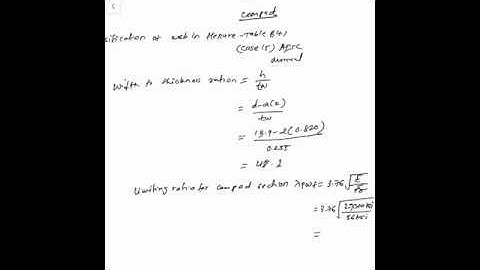 compad
sification of web in flexure - Table B4.1
(case 15) AISC
manual
width to thickness ration = h/tw
= d-2(k)/tw
= 13.9-2(0.820)/0.255
= 48.2
Limiting ratio for compad section λpwf = 3.76 √E/Fy
= 3.76 √29000 ksi/36 ksi
=